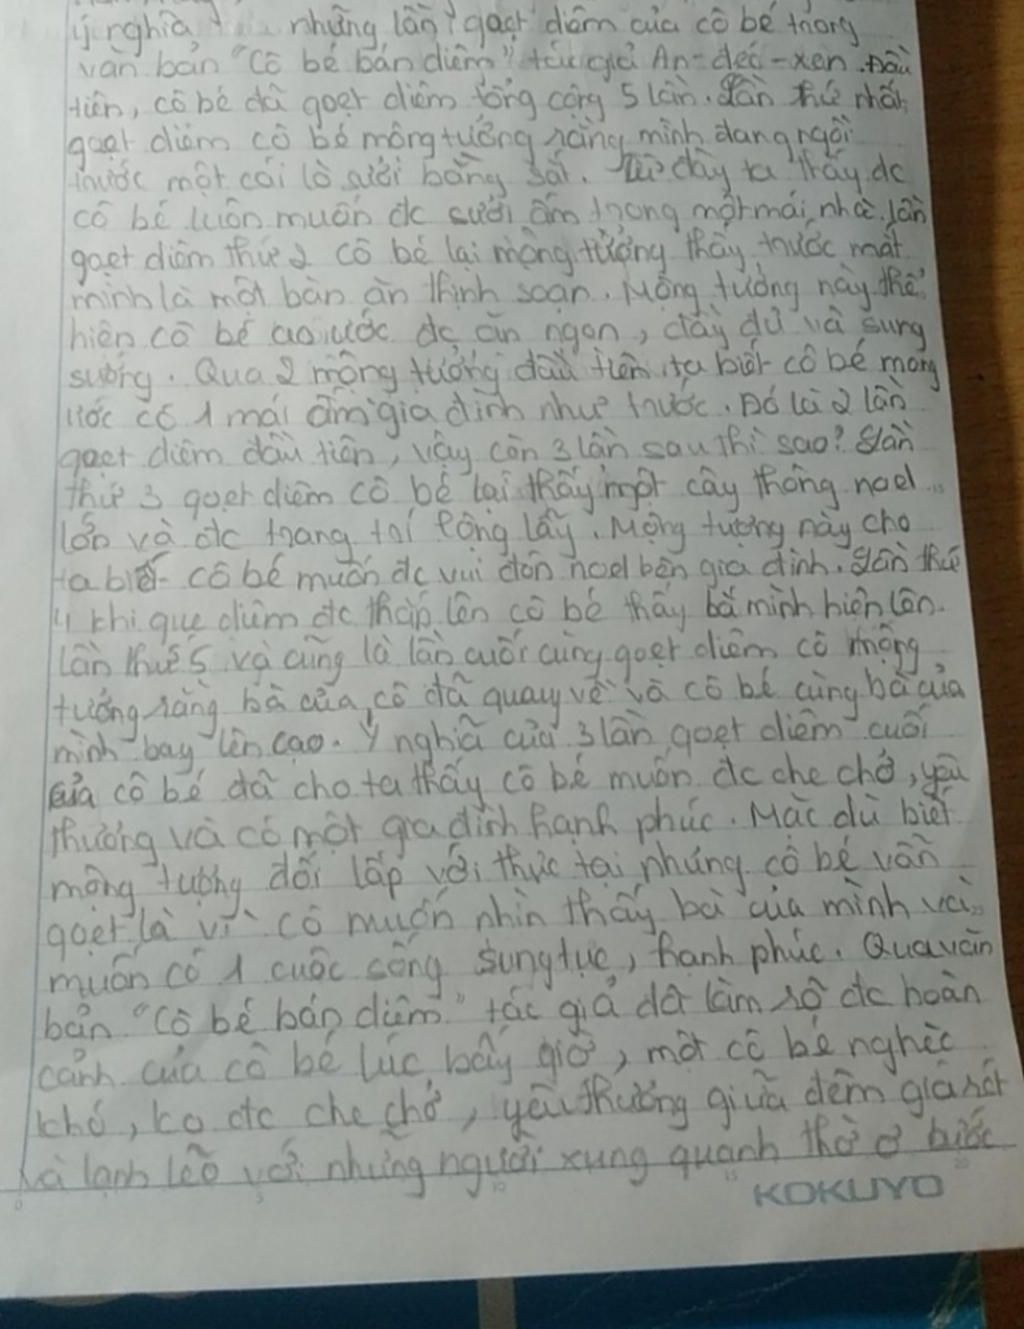 ý nghĩa những lần gọet diêm của cô bé trong
văn bản "Cô bé bán diêm" tác giả An-đéc-xen. Đầu
tiên, cô bé đã goẹt diêm tổng cộng 5 lần. Lần thứ nhất
goẹt diêm cô bé mộng tưởng rằng mình đang ngồi
trước một cái lò sưởi bằng sắt. Từ đây ta thấy dc
cô bé luôn muốn dc sưởi ấm trong một mái nhà. lần
goẹt diêm thứ 2 cô bé lại mộng tưởng thấy trước mắt
mình là một bàn ăn thịnh soạn. Mộng tưởng này thể
hiện cô bé ao ước dc ăn ngon, đầy đủ và sung
sướng. Qua 2 mộng tưởng đầu tiên ta biết cô bé mong
ước có 1 mái ấm gia đình như trước. Đó là 2 lần
goẹt diêm đầu tiên, vậy còn 3 lần sau thì sao? Lần
thứ 3 goẹt diêm cô bé lại thấy một cây thông noel
lớn và dc trang trí lộng lẫy. Mộng tượng này cho
ta biết cô bé muốn dc vui đón noel bên gia đình. Lần thứ
4 khi que diêm dc thắp lên cô bé thấy bà mình hiện lên.
Lần thứ 5 và cũng là lần cuối cùng goẹt diêm cô mộng
tưởng rằng bà của cô đã quay về và cô bé cùng bà của
mình bay lên cao. Ý nghĩa của 3 lần goẹt diêm cuối
của cô bé đã cho ta thấy cô bé muốn dc che chở, yêu
thương và có một gia đình hạnh phúc. Mặc dù biết
mộng tượng đối lập với thực tại nhưng cô bé vẫn
goẹt là vì cô muốn nhìn thấy bà của mình và
muốn có 1 cuộc sống sung tục, hạnh phúc. Qua văn
bản "Cô bé bán diêm" tác giả đã làm rõ dc hoàn
cảnh của cô bé lúc bấy giờ, một cô bé nghèo
khó, ko dc che chở, yêu thương giữa đêm giá rét
và lạnh lẽo với những người xung quanh thờ ơ bước
KOKUYO